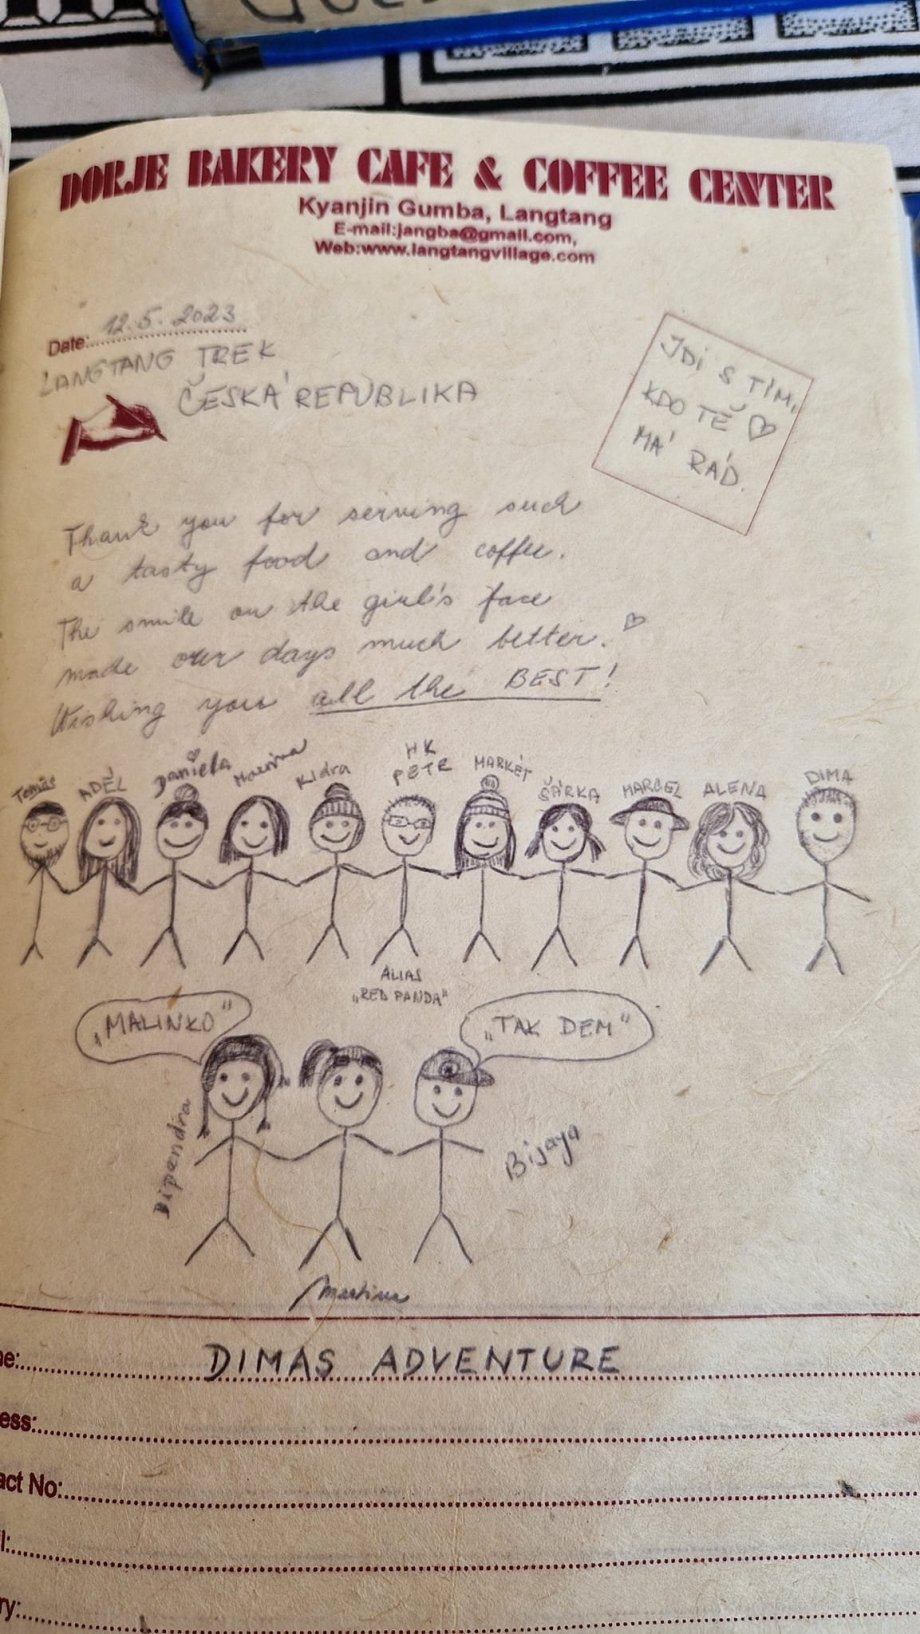 DORJE BAKERY CAFE & COFFEE CENTER
Kyanjin Gumba, Langtang
E-mail:jangba@gmail.com,
Web:www.langtangvillage.com
Date: 12.5.2023
LANGTANG TREK
ČESKÁ REPUBLIKA
JDI S TÍM,
KDO TĚ ♡
MÁ RÁD.
Thank you for serving such
a tasty food and coffee.
The smile on the girl's face
made our days much better. ♡
Wishing you all the BEST!
Tomáš ADÉL Daniela Klára HK PETR MARKÉT ŠÁRKA MARCEL ALENA DIMA
ALIAS
„RED PANDA"
„MALINKO" „TAK DEM"
Dipendra
Bijaya
Martina
DIMAS ADVENTURE
act No: